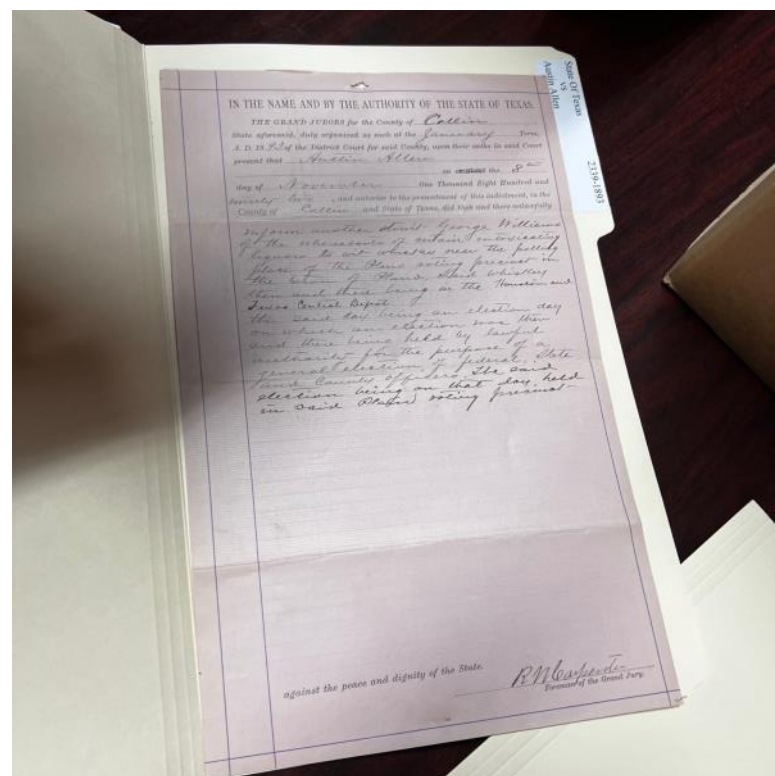 IN THE NAME AND BY THE AUTHORITY OF THE STATE OF TEXAS.
THE GRAND JURORS for the County of Collin
State aforesaid, duly organized as such at the January Term,
A. D. 1893 of the District Court for said County, upon their oaths in said Court
present that Austin Allen
on the 8th
day of November One Thousand Eight Hundred and
ninety two, and anterior to the presentment of this indictment, in the
County of Collin and State of Texas, did then and there unlawfully
inform another George Williams
of the whereabouts of intoxicating
liquors to wit whiskey near the polling
place of the Plano voting precinct in
the town of Plano. Said whiskey
then and there being in the Houston and
Texas Central Depot
the said day being an election day
on which an election was then
and there being held by lawful
authority for the purpose of a
general election of federal, State
and County officers. The said
election being on that day held
in said Plano voting precinct
against the peace and dignity of the State.
R N Carpenter
Foreman of the Grand Jury.
State Of Texas
vs
Austin Allen
2339-1893